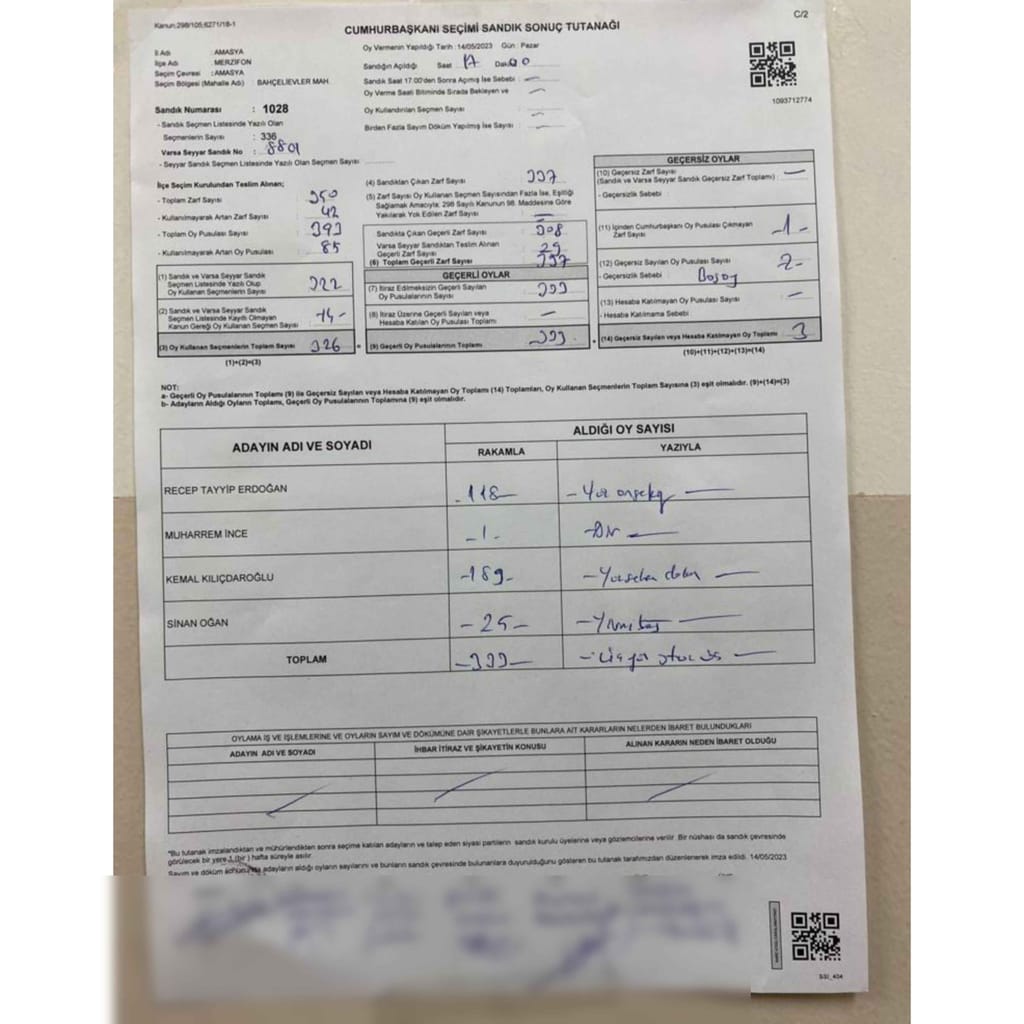 Kanun:298/105;6271/18-1
C/2
CUMHURBAŞKANI SEÇİMİ SANDIK SONUÇ TUTANAĞI
İl Adı : AMASYA
İlçe Adı : MERZİFON
Seçim Çevresi : AMASYA
Seçim Bölgesi (Mahalle Adı) BAHÇELİEVLER MAH.
Sandık Numarası : 1028
- Sandık Seçmen Listesinde Yazılı Olan
Seçmenlerin Sayısı : 336
Varsa Seyyar Sandık No : 8801
- Seyyar Sandık Seçmen Listesinde Yazılı Olan Seçmen Sayısı
Oy Vermenin Yapıldığı Tarih : 14/05/2023 Gün : Pazar
Sandığın Açıldığı Saat 17 Dak. 00
Sandık Saat 17.00'den Sonra Açılmış İse Sebebi :
Oy Verme Saati Bitiminde Sırada Bekleyen ve
Oy Kullandırılan Seçmen Sayısı :
Birden Fazla Sayım Döküm Yapılmış İse Sayısı :
1093712774
İlçe Seçim Kurulundan Teslim Alınan;
- Toplam Zarf Sayısı : 350
- Kullanılmayarak Artan Zarf Sayısı : 42
- Toplam Oy Pusulası Sayısı : 393
- Kullanılmayarak Artan Oy Pusulası : 85
(1) Sandık ve Varsa Seyyar Sandık
Seçmen Listesinde Yazılı Olup
Oy Kullanan Seçmenlerin Sayısı : 322
(2) Sandık ve Varsa Seyyar Sandık
Seçmen Listesinde Kayıtlı Olmayan
Kanun Gereği Oy Kullanan Seçmen Sayısı :
(3) Oy Kullanan Seçmenlerin Toplam Sayısı : 326
(1)+(2)=(3)
(4) Sandıktan Çıkan Zarf Sayısı : 337
(5) Zarf Sayısı Oy Kullanan Seçmen Sayısından Fazla İse, Eşitliği
Sağlamak Amacıyla; 298 Sayılı Kanunun 98. Maddesine Göre
Yakılarak Yok Edilen Zarf Sayısı :
Sandıkta Çıkan Geçerli Zarf Sayısı : 308
Varsa Seyyar Sandıktan Teslim Alınan
Geçerli Zarf Sayısı : 29
(6) Toplam Geçerli Zarf Sayısı : 337
GEÇERLİ OYLAR
(7) İtiraz Edilmeksizin Geçerli Sayılan
Oy Pusulalarının Sayısı : 333
(8) İtiraz Üzerine Geçerli Sayılan veya
Hesaba Katılan Oy Pusulası Toplamı :
(9) Geçerli Oy Pusulalarının Toplamı : 333
GEÇERSİZ OYLAR
(10) Geçersiz Zarf Sayısı
(Sandık ve Varsa Seyyar Sandık Geçersiz Zarf Toplamı) :
- Geçersizlik Sebebi :
(11) İçinden Cumhurbaşkanı Oy Pusulası Çıkmayan
Zarf Sayısı : -1-
(12) Geçersiz Sayılan Oy Pusulası Sayısı : 2-
- Geçersizlik Sebebi :
(13) Hesaba Katılmayan Oy Pusulası Sayısı :
- Hesaba Katılmama Sebebi :
(14) Geçersiz Sayılan veya Hesaba Katılmayan Oy Toplamı : 3
(10)+(11)+(12)+(13)=(14)
NOT:
a- Geçerli Oy Pusulalarının Toplamı (9) ile Geçersiz Sayılan veya Hesaba Katılmayan Oy Toplamı (14) Toplamları, Oy Kullanan Seçmenlerin Toplam Sayısına (3) eşit olmalıdır. (9)+(14)=(3)
b- Adayların Aldığı Oyların Toplamı, Geçerli Oy Pusulalarının Toplamına (9) eşit olmalıdır.
ADAYIN ADI VE SOYADI
ALDIĞI OY SAYISI
RAKAMLA YAZIYLA
RECEP TAYYİP ERDOĞAN 118 -Yüz onsekiz
MUHARREM İNCE -1- -Bir
KEMAL KILIÇDAROĞLU -189-
SİNAN OĞAN -25- -Yirmi beş
TOPLAM -333- -Üçyüz otuz üç
OYLAMA İŞ VE İŞLEMLERİNE VE OYLARIN SAYIM VE DÖKÜMÜNE DAİR ŞİKAYETLERLE BUNLARA AİT KARARLARIN NELERDEN İBARET BULUNDUKLARI
ADAYIN ADI VE SOYADI İHBAR İTİRAZ VE ŞİKAYETİN KONUSU ALINAN KARARIN NEDEN İBARET OLDUĞU
*Bu tutanak imzalandıktan ve mühürlendikten sonra seçime katılan adayların ve talep eden siyasi partilerin sandık kurulu üyelerine veya gözlemcilerine verilir. Bir nüshası da sandık çevresinde
görülecek bir yere 1 (bir) hafta süreyle asılır.
Sayım ve döküm sonucunda adayların aldığı oyların sayılarını ve bunların sandık çevresinde bulunanlara duyurulduğunu gösteren bu tutanak tarafımızdan düzenlenerek imza edildi. 14/05/2023
SSI_404